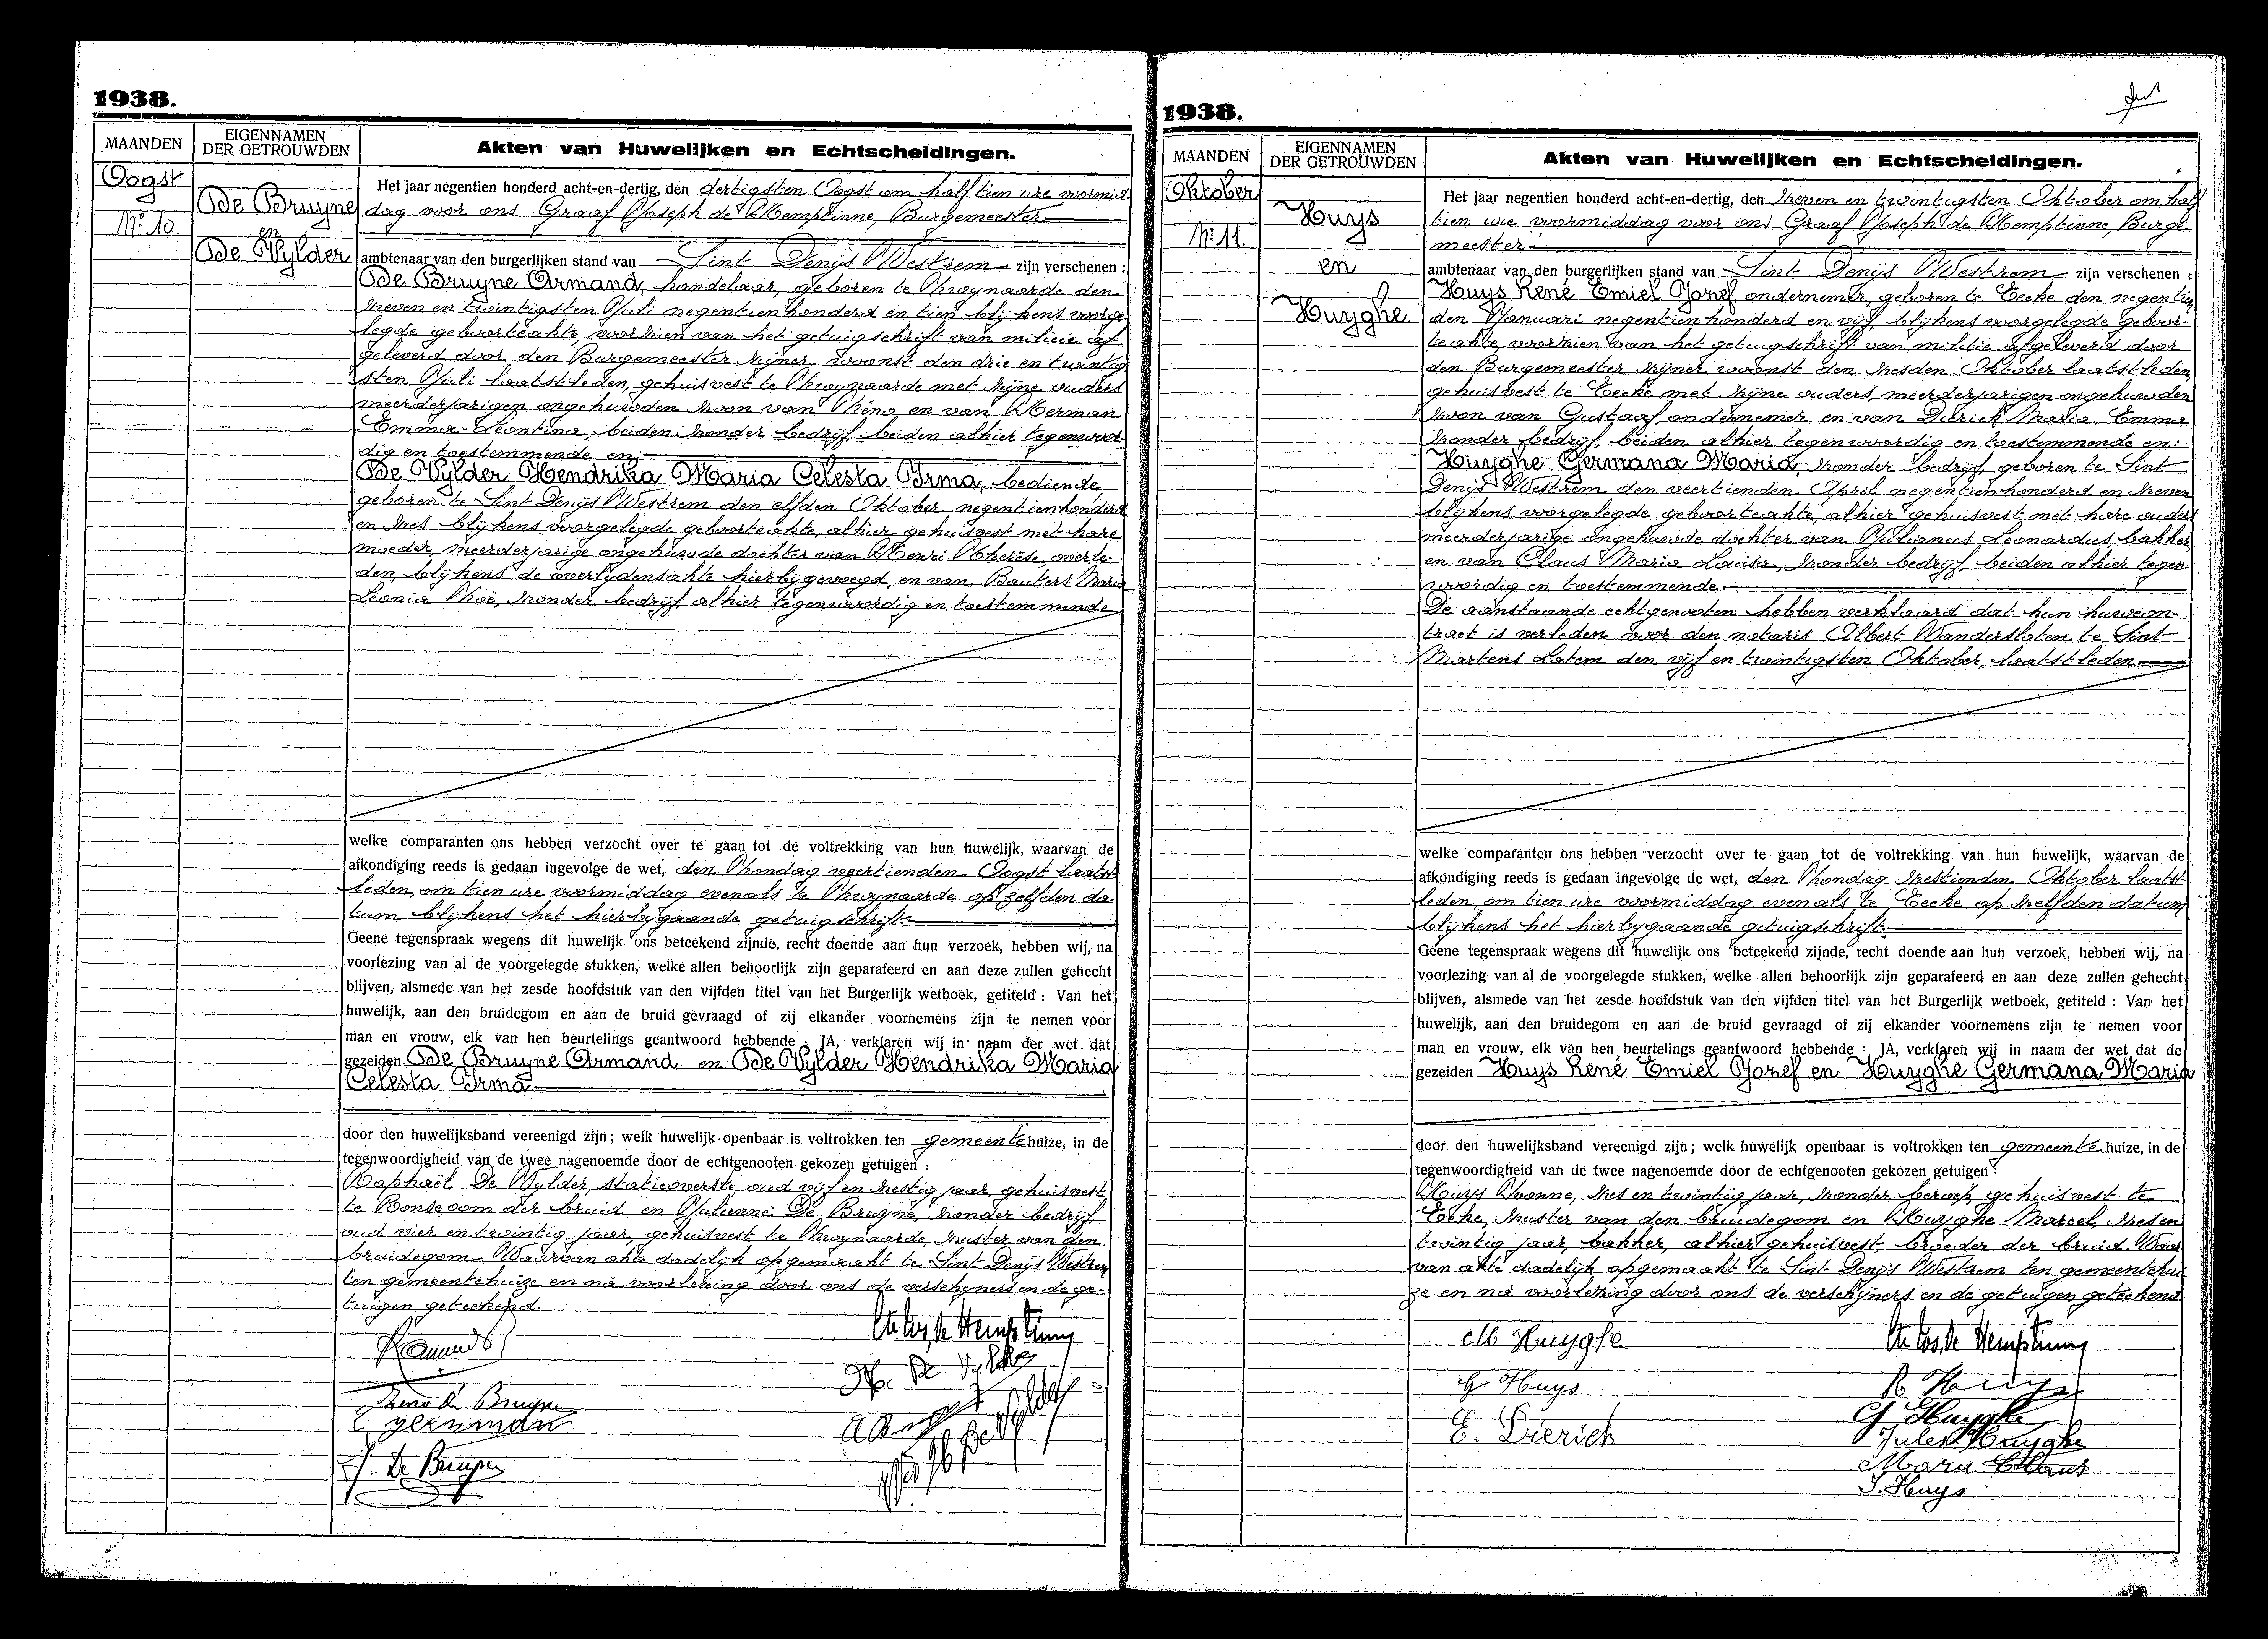 1938.
MAANDEN
EIGENNAMEN
DER GETROUWDEN
Akten van Huwelijken en Echtscheidingen.
Oogst
No 10.
De Bruyne
en
De Vylder
Het jaar negentien honderd acht-en-dertig, den dertigsten Oogst om half tien ure voormid-
dag voor ons Graaf Joseph de Hemptinne, Burgemeester
ambtenaar van den burgerlijken stand van Sint Denijs Westrem zijn verschenen :
De Bruyne Armand, handelaar, geboren te Zwynaarde den
zeven en twintigsten Juli negentienhonderd en tien blijkens voorge-
legde geboorteakte, voorzien van het getuigschrift van milicie af-
geleverd door den Burgemeester zijner woonst den drie en twintig
sten Juli laatstleden, gehuisvest te Zwynaarde met zijne ouders
meerderjarigen ongehuwden zoon van Zéno en van Herman
Emma-Leontina, beiden zonder bedrijf, beiden alhier tegenwoor-
dig en toestemmende en:
De Vylder Hendrika Maria Celesta Irma, bediende
geboren te Sint Denijs Westrem den elfden Oktober negentienhonderd
en zes blijkens voorgelegde geboorteakte, alhier gehuisvest met hare
moeder, meerderjarige ongehuwde dochter van Henri Therèse, overle-
den, blijkens de overlijdensakte hierbijgevoegd, en van Bauters Maria
Leonia Zoë, zonder bedrijf, alhier tegenwoordig en toestemmende
welke comparanten ons hebben verzocht over te gaan tot de voltrekking van hun huwelijk, waarvan de
afkondiging reeds is gedaan ingevolge de wet, den Zondag veertienden Oogst laatst
leden, om tien ure voormiddag evenals te Zwynaarde op zelfden da-
tum blijkens het hierbijgaande getuigschrift.
Geene tegenspraak wegens dit huwelijk ons beteekend zijnde, recht doende aan hun verzoek, hebben wij, na
voorlezing van al de voorgelegde stukken, welke allen behoorlijk zijn geparafeerd en aan deze zullen gehecht
blijven, alsmede van het zesde hoofdstuk van den vijfden titel van het Burgerlijk wetboek, getiteld : Van het
huwelijk, aan den bruidegom en aan de bruid gevraagd of zij elkander voornemens zijn te nemen voor
man en vrouw, elk van hen beurtelings geantwoord hebbende : JA, verklaren wij in naam der wet dat
gezeiden De Bruyne Armand en De Vylder Hendrika Maria
Celesta Irma
door den huwelijksband vereenigd zijn ; welk huwelijk openbaar is voltrokken ten gemeentehuize, in de
tegenwoordigheid van de twee nagenoemde door de echtgenooten gekozen getuigen :
Raphaël De Vylder, statieoverste, oud vijf en zestig jaar, gehuisvest
te Ronse, oom der bruid en Julienne De Bruyne, zonder bedrijf,
oud vier en twintig jaar, gehuisvest te Zwynaarde, zuster van den
bruidegom. Waarvan akte dadelijk opgemaakt te Sint Denijs Westrem
ten gemeentehuize en na voorlezing door ons de verschijners en de ge-
tuigen geteekend.
Cte Jos. de Hemptinne
H. De Vylder
Zeno De Bruyne
E Herman
J. De Bruyne
1938.
MAANDEN
EIGENNAMEN
DER GETROUWDEN
Akten van Huwelijken en Echtscheidingen.
Oktober
No 11.
Huys
en
Huyghe
Het jaar negentien honderd acht-en-dertig, den zeven en twintigsten Oktober om half
tien ure voormiddag voor ons Graaf Joseph de Hemptinne, Burge-
meester
ambtenaar van den burgerlijken stand van Sint Denijs Westrem zijn verschenen :
Huys René Emiel Jozef, ondernemer, geboren te Eecke den negentien
den Januari negentienhonderd en vijf, blijkens voorgelegde geboor-
teakte, voorzien van het getuigschrift van militie afgeleverd door
den Burgemeester zijner woonst den zesden Oktober laatstleden,
gehuisvest te Eecke met zijne ouders, meerderjarigen ongehuwden
zoon van Gustaaf, ondernemer en van Dierick Maria Emma
zonder bedrijf, beiden alhier tegenwoordig en toestemmende en:
Huyghe Germana Maria, zonder bedrijf, geboren te Sint
Denijs Westrem den veertienden April negentienhonderd en zeven
blijkens voorgelegde geboorteakte, alhier gehuisvest met hare ouders
meerderjarige ongehuwde dochter van Julianus Leonardus, bakker,
en van Claus Maria Louisa, zonder bedrijf, beiden alhier tegen-
woordig en toestemmende.
De aanstaande echtgenooten hebben verklaard dat hun huwcon-
tract is verleden voor den notaris Albert Vandersloten te Sint
Martens Latem den vijf en twintigsten Oktober, laatstleden
welke comparanten ons hebben verzocht over te gaan tot de voltrekking van hun huwelijk, waarvan de
afkondiging reeds is gedaan ingevolge de wet, den Zondag zestienden Oktober laatst
leden, om tien ure voormiddag evenals te Eecke op zelfden datum
blijkens het hierbygaande getuigschrift.
Geene tegenspraak wegens dit huwelijk ons beteekend zijnde, recht doende aan hun verzoek, hebben wij, na
voorlezing van al de voorgelegde stukken, welke allen behoorlijk zijn geparafeerd en aan deze zullen gehecht
blijven, alsmede van het zesde hoofdstuk van den vijfden titel van het Burgerlijk wetboek, getiteld : Van het
huwelijk, aan den bruidegom en aan de bruid gevraagd of zij elkander voornemens zijn te nemen voor
man en vrouw, elk van hen beurtelings geantwoord hebbende : JA, verklaren wij in naam der wet dat de
gezeiden Huys René Emiel Jozef en Huyghe Germana Maria
door den huwelijksband vereenigd zijn ; welk huwelijk openbaar is voltrokken ten gemeentehuize, in de
tegenwoordigheid van de twee nagenoemde door de echtgenooten gekozen getuigen :
Huys Yvonne, zes en twintig jaar, zonder beroep, gehuisvest te
Eecke, zuster van den bruidegom en Huyghe Marcel, zes en
twintig jaar, bakker, alhier gehuisvest, broeder der bruid. Waar
van akte dadelijk opgemaakt te Sint Denijs Westrem ten gemeentehui
ze en na voorlezing door ons de verschijners en de getuigen geteekend
M Huyghe
Cte Jos. de Hemptinne
G. Huys
R Huys
G. Huyghe
E. Dierick
Jules Huyghe
Marie Claus
Y. Huys